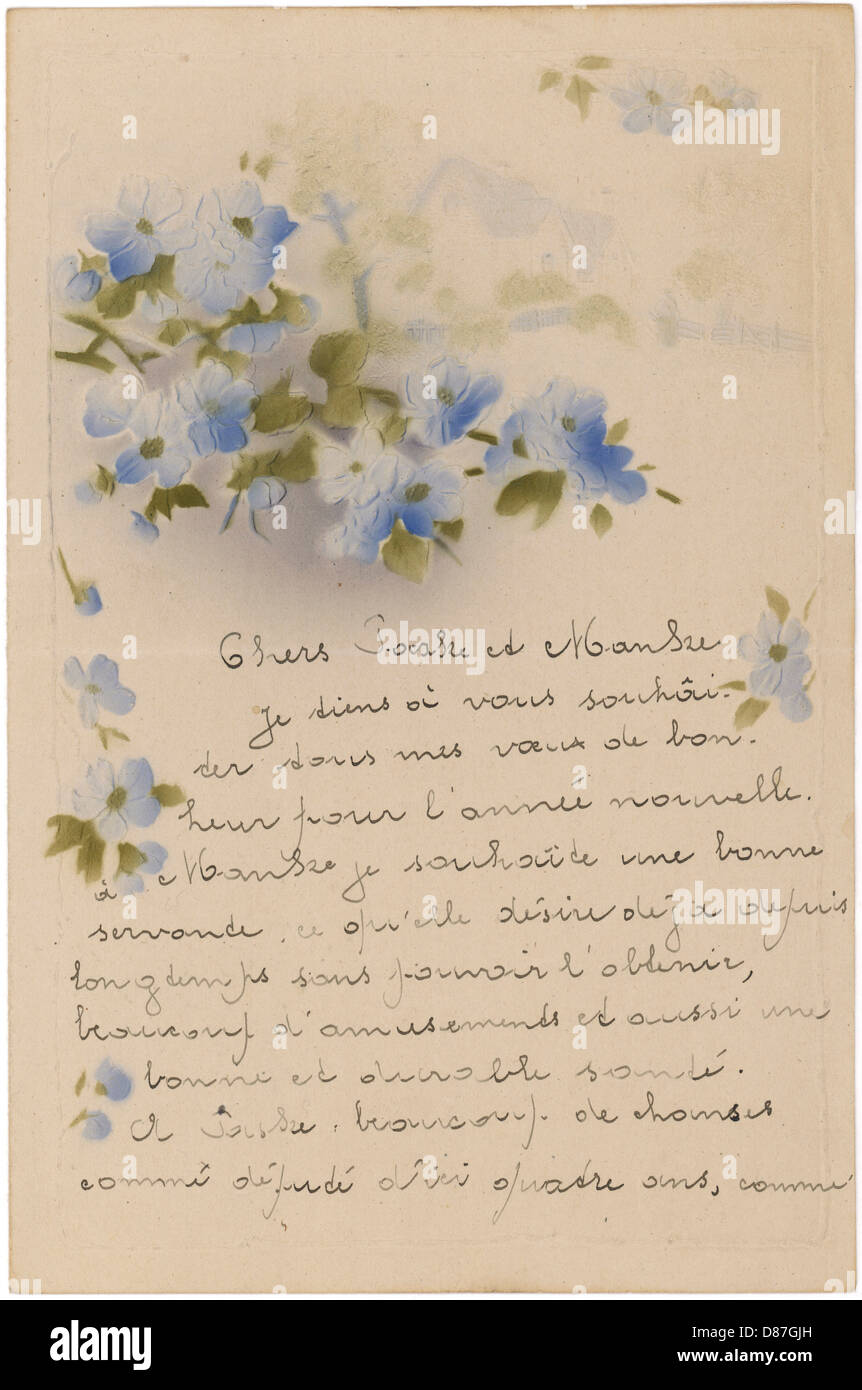 Chers et
je tiens à vous souhâi-
ter tous mes vœux de bon-
heur pour l'année nouvelle.
à je souhaite une bonne
servante, ce qu'elle désire déjà depuis
longtemps sans pouvoir l'obtenir,
beaucoup d'amusements et aussi une
bonne et durable santé.
A beaucoup de chanses
comme député d'ici quatre ans, comme
alamy
a
Image ID: D87GJH
www.alamy.com